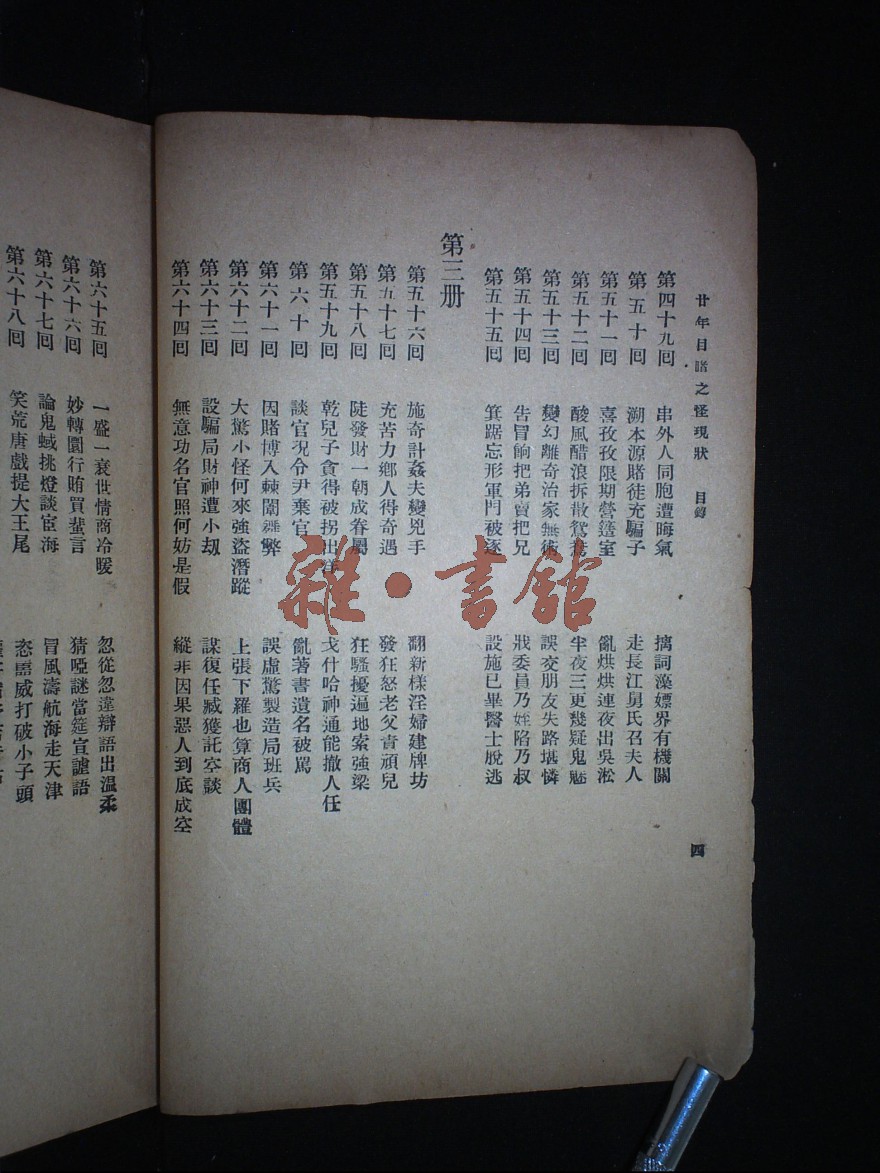 廿年目睹之怪現狀 目錄
四
第四十九回 串外人同胞遭晦氣 摛詞藻嫖界有機關
第五十回 溯本源賭徒充騙子 走長江舅氏召夫人
第五十一回 喜孜孜限期營簉室 亂烘烘連夜出吳淞
第五十二回 酸風醋浪拆散鴛鴦 半夜三更幾疑鬼魅
第五十三回 變幻離奇治家無術 誤交朋友失路堪憐
第五十四回 告冒餉把弟賣把兄 戕委員乃姪陷乃叔
第五十五回 箕踞忘形軍門被逐 設施已畢醫士脫逃
第三册
第五十六回 施奇計姦夫變兇手 翻新樣淫婦建牌坊
第五十七回 充苦力鄉人得奇遇 發狂怒老父責頑兒
第五十八回 陡發財一朝成眷屬 狂騷擾遍地索強梁
第五十九回 乾兒子貪得被拐出洋 戈什哈神通能撤人任
第六十回 談官况令尹棄官 亂著書遺名被罵
第六十一回 因賭博入棘闈舞弊 誤虛驚製造局班兵
第六十二回 大驚小怪何來強盜潛蹤 上張下羅也算商人團體
第六十三回 設騙局財神遭小刼 謀復任臧獲託空談
第六十四回 無意功名官照何妨是假 縱非因果惡人到底成空
第六十五回 一盛一衰世情商冷暖 忽從忽違辯語出溫柔
第六十六回 妙轉圜行賄買蜚言 猜啞謎當筵宣謔語
第六十七回 論鬼蜮挑燈談宦海 冒風濤航海走天津
第六十八回 笑荒唐戲提大王尾 恣嚚威打破小子頭
雜·書館